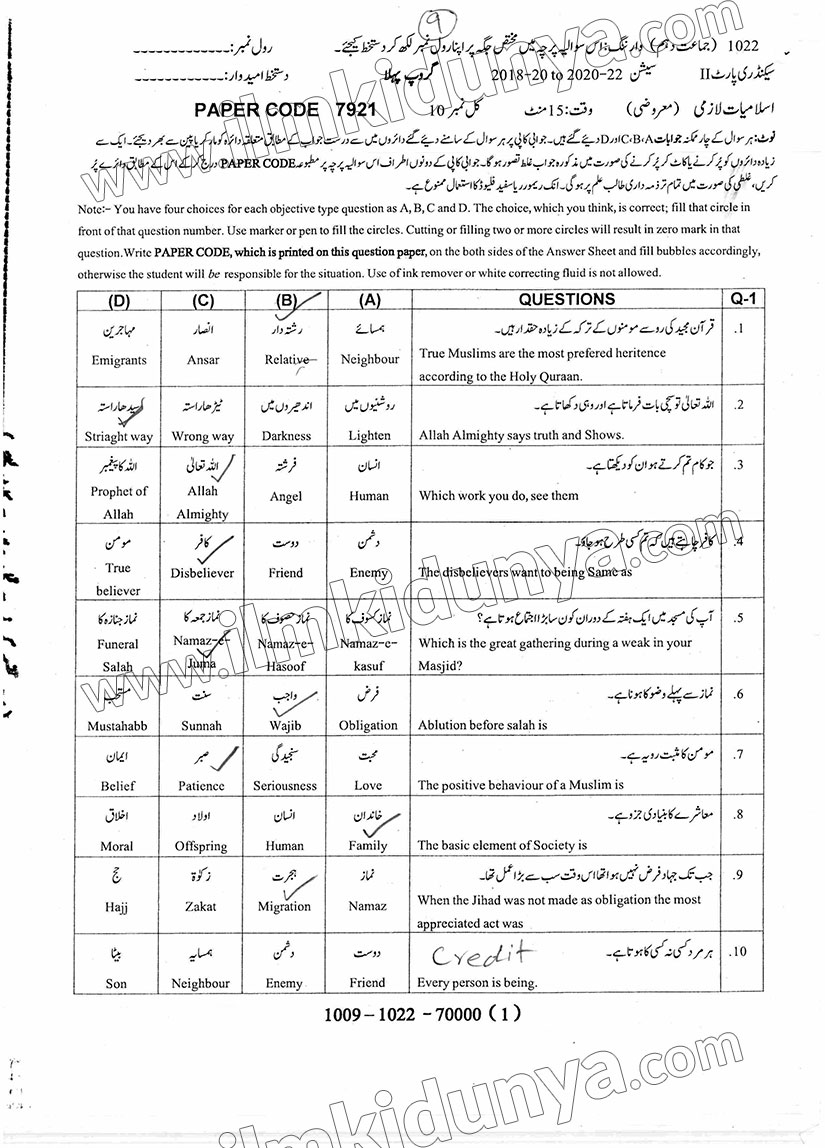 9
1022 (جماعت دہم) وارننگ: اس سوالیہ پرچہ میں مختص جگہ پر اپنا رول نمبر لکھ کر دستخط کیجئے۔ رول نمبر: -------------
سیکنڈری پارٹ II سیشن 2018-20 to 2020-22 گروپ پہلا دستخط امیدوار: -------------
اسلامیات لازمی (معروضی) وقت: 15 منٹ کل نمبر 10 PAPER CODE 7921
نوٹ: ہر سوال کے چار ممکنہ جوابات A،B،C اور D دیئے گئے ہیں۔ جوابی کاپی پر ہر سوال کے سامنے دیئے گئے دائروں میں سے درست جواب کے مطابق متعلقہ دائرہ کو مارکر یا پین سے بھر دیجئے۔ ایک سے
زیادہ دائروں کو پُر کرنے یا کاٹ کر پُر کرنے کی صورت میں مذکورہ جواب غلط تصور ہو گا۔ جوابی کاپی کے دونوں اطراف اس سوالیہ پرچہ پر مطبوعہ PAPER CODE درج کر کے اس کے مطابق دائرے پُر
کریں، غلطی کی صورت میں تمام تر ذمہ داری طالب علم پر ہو گی۔ انک ریموور یا سفید فلیوڈ کا استعمال ممنوع ہے۔
Note:- You have four choices for each objective type question as A, B, C and D. The choice, which you think, is correct; fill that circle in
front of that question number. Use marker or pen to fill the circles. Cutting or filling two or more circles will result in zero mark in that
question.Write PAPER CODE, which is printed on this question paper, on the both sides of the Answer Sheet and fill bubbles accordingly,
otherwise the student will be responsible for the situation. Use of ink remover or white correcting fluid is not allowed.
(D) (C) (B) (A) QUESTIONS Q-1
مہاجرین انصار رشتہ دار ہمسائے قرآن مجید کی رو سے مومنوں کے ترکہ کے زیادہ حقدار ہیں۔ .1
Emigrants Ansar Relative Neighbour True Muslims are the most prefered heritence
according to the Holy Quraan.
سیدھا راستہ ٹیڑھا راستہ اندھیروں میں روشنیوں میں اللہ تعالیٰ تو سچی بات فرماتا ہے اور وہی دکھاتا ہے۔ .2
Striaght way Wrong way Darkness Lighten Allah Almighty says truth and Shows.
اللہ کا پیغمبر اللہ تعالیٰ فرشتہ انسان جو کام تم کرتے ہو ان کو دیکھتا ہے۔ .3
Prophet of Allah Angel Human Which work you do, see them
Allah Almighty
مومن کافر دوست دشمن کافر چاہتے ہیں کہ تم کسی طرح ہو جاؤ۔ .4
True Disbeliever Friend Enemy The disbelievers want to being Same as
believer
نماز جنازہ کا نماز جمعہ کا نماز خسوف کا نماز کسوف کا آپ کی مسجد میں ایک ہفتہ کے دوران کون سا بڑا اجتماع ہوتا ہے؟ .5
Funeral Namaz-e- Namaz-e- Namaz-e- Which is the great gathering during a weak in your
Salah Juma Hasoof kasuf Masjid?
مستحب سنت واجب فرض نماز سے پہلے وضو کا ہونا ہے۔ .6
Mustahabb Sunnah Wajib Obligation Ablution before salah is
ایمان صبر سنجیدگی محبت مومن کا مثبت رویہ ہے۔ .7
Belief Patience Seriousness Love The positive behaviour of a Muslim is
اخلاق اولاد انسان خاندان معاشرے کا بنیادی جزو ہے۔ .8
Moral Offspring Human Family The basic element of Society is
حج زکوٰۃ ہجرت نماز جب تک جہاد فرض نہیں ہوا تھا اس وقت سب سے بڑا عمل تھا۔ .9
Hajj Zakat Migration Namaz When the Jihad was not made as obligation the most
appreciated act was
بیٹا ہمسایہ دشمن دوست Credit ہر مرد کسی نہ کسی کا ہوتا ہے۔ .10
Son Neighbour Enemy Friend Every person is being.
1009 – 1022 – 70000 ( 1 )
www.ilmkidunya.com
www.ilmkidunya.com
www.ilmkidunya.com